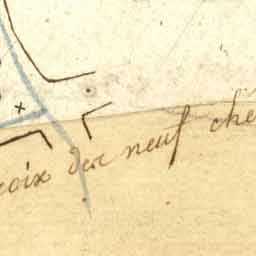 roix des neuf che